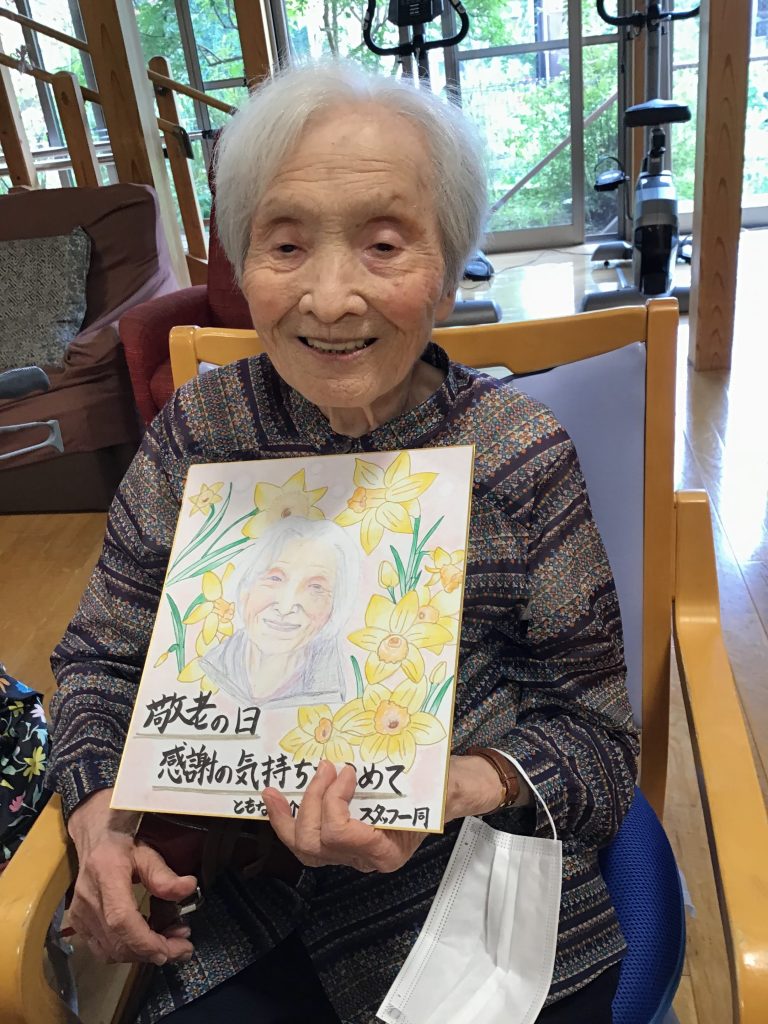 敬老の日
感謝の気持ち めて
ともな スタッフ一同